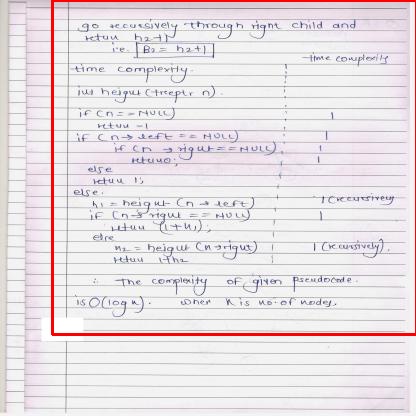 go recursively through right child and
retun h2+1
i.e. B2 = h2+1
time complexity
time complexity.
int height (treeptr n).
if (n == NULL) 1
retun -1
if (n → left == NULL) 1
if (n → right == NULL) 1
retun 0; 1
else
retun 1;
else.
h1 = height (n → left) 1 (recursively
if (n → right == NULL) 1
retun (1+h1);
else
h2 = height (n → right) 1 (recursively).
retun 1+h2
∴ The complexity of given pseudocode.
is O(log n). wher n is no. of nodes.